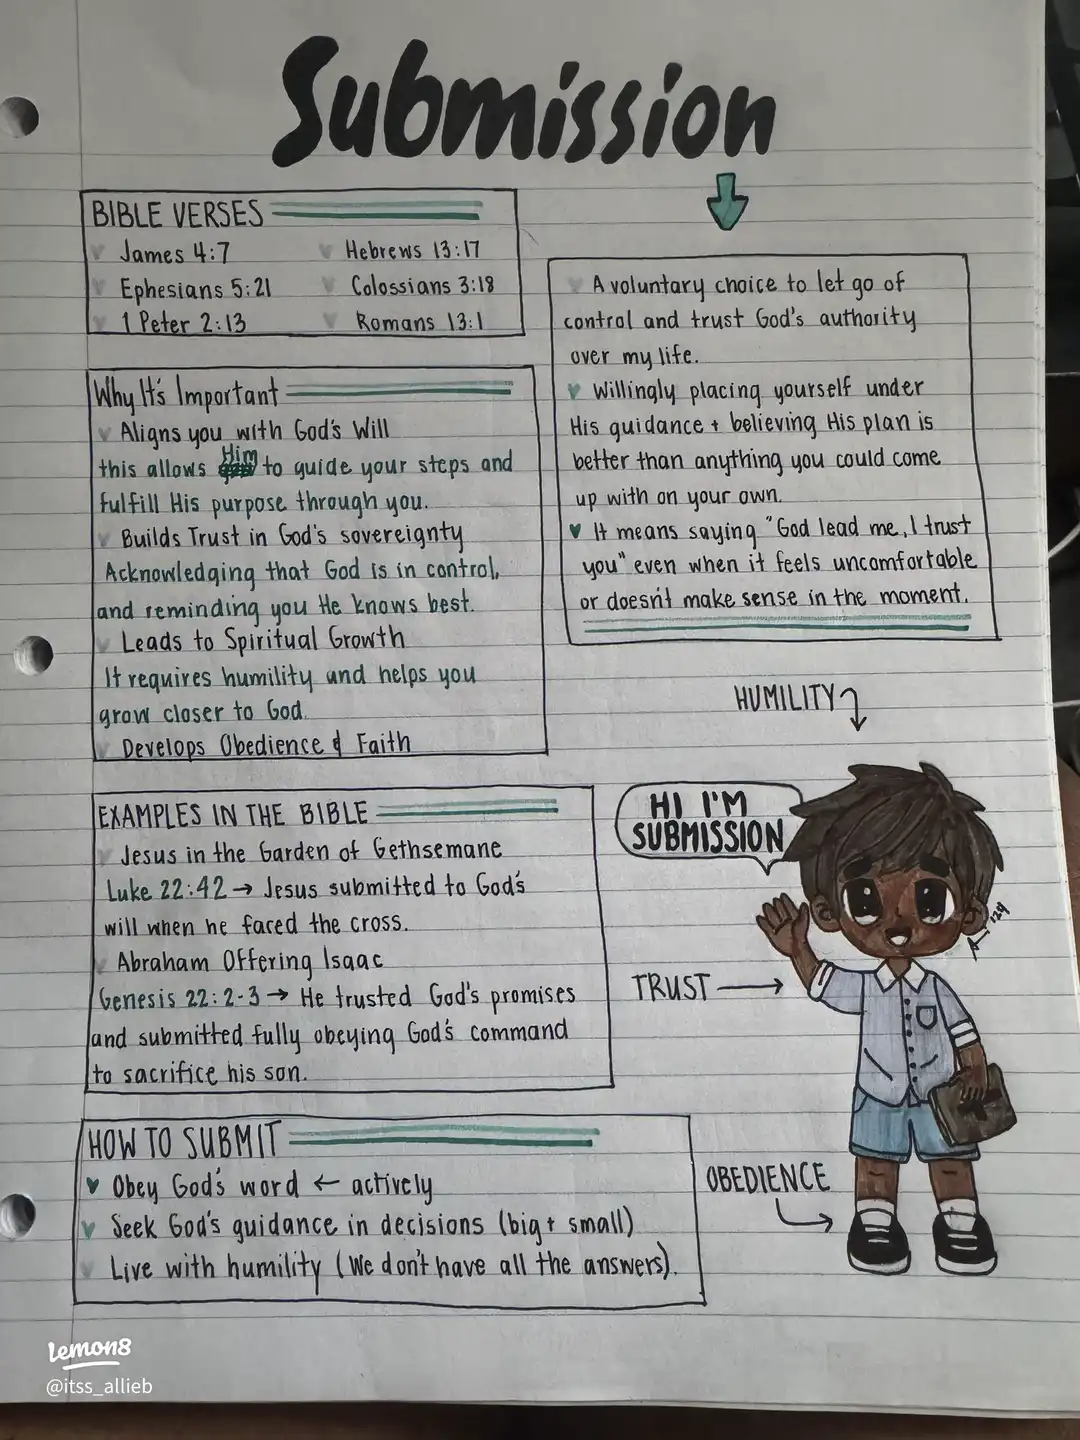 Submission
BIBLE VERSES
James 4:7
Ephesians 5:21
1 Peter 2:13
Hebrews 13:17
Colossians 3:18
Romans 13:1
A voluntary choice to let go of
control and trust God's authority
over my life.
Willingly placing yourself under
His guidance + believing His plan is
better than anything you could come
up with on your own.
It means saying "God lead me, I trust
you" even when it feels uncomfortable
or doesn't make sense in the moment.
Why It's Important
Aligns you with God's Will
this allows Him to guide your steps and
fulfill His purpose through you.
Builds Trust in God's sovereignty
Acknowledging that God is in control,
and reminding you He knows best.
Leads to Spiritual Growth
It requires humility and helps you
grow closer to God.
Develops Obedience & Faith
EXAMPLES IN THE BIBLE
Jesus in the Garden of Gethsemane
Luke 22:42 → Jesus submitted to God's
will when he faced the cross.
Abraham Offering Isaac
Genesis 22:2-3 → He trusted God's promises
and submitted fully obeying God's command
to sacrifice his son.
HOW TO SUBMIT
Obey God's word ← actively
Seek God's guidance in decisions (big + small)
Live with humility (We don't have all the answers).
HUMILITY
HI I'M
SUBMISSION
TRUST
OBEDIENCE
lemon8
@itss_allieb